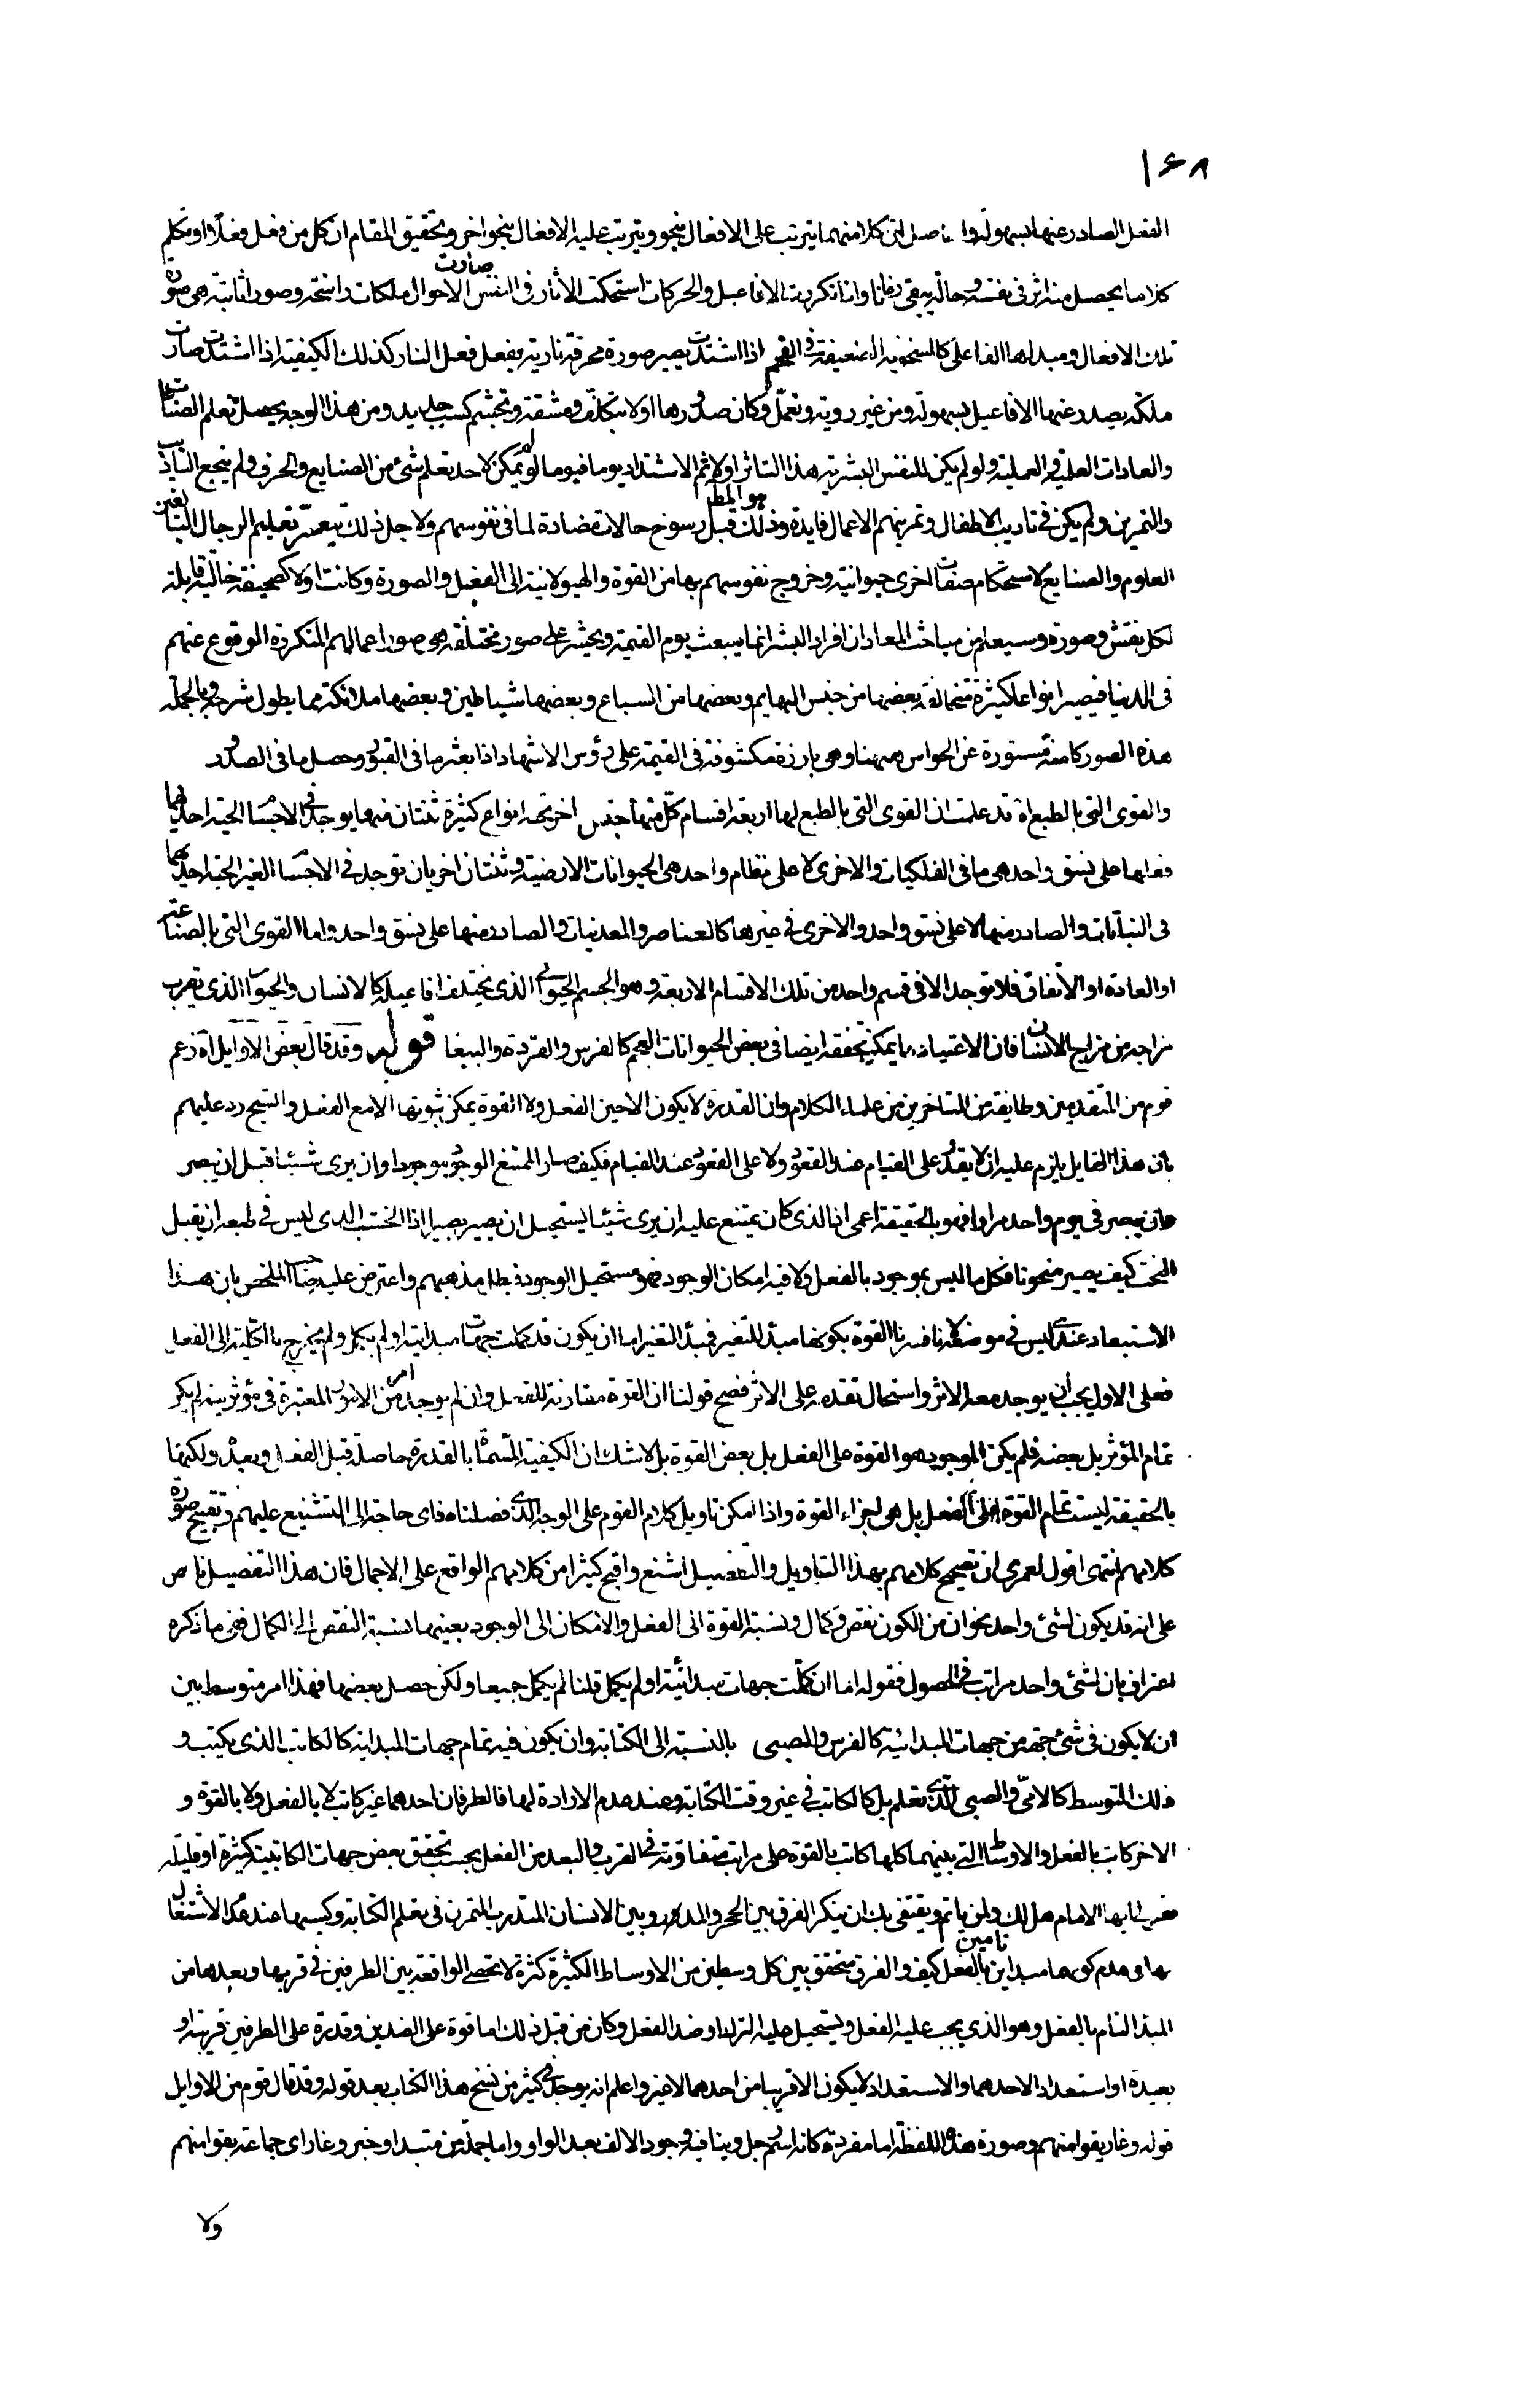 ١٦٨
الفعل الصادر عنها بسهولة وا حاصل ان كلا منهما يترتب على الافعال بنحو ويترتب عليه الافعال بنحو اخر وتحقيق المقام ان كل من فعل فعلا او تكلم
كلاما يحصل منه اثر فى نفسه وحالة يبقى زمانا واذا تكررت الافاعيل والحركات استحكمت الاثار فى النفس صارت الاحوال ملكات راسخة وصورا ثابتة هى صورة
تلك الافعال ومبداها الفاعلى كالسخونة الضعيفة فى الفحم اذا اشتدت يصير صورة محرقة نارية يفعل فعل النار كذلك الكيفية اذا اشتدت صارت
ملكة يصدر عنها الافاعيل بسهولة ومن غير روية وتعمّل وكان صدورها اولا بتكلف ومشقة وتجشم كسب جديد ومن هذا الوجه يحصل تعلم الصناعات
والعادات العلمية والعملية ولو لم يكن للنفس البشرية هذا التاثر اولا ثم الاشتداد يوما فيوما لم يمكن لاحد تعلم شئ من الصنايع والحرف ولم ينجع التاديب
والتمرين ولم يكن فى تاديب الاطفال وتمرينهم الاعمال فايدة وذلك هو المط قبل رسوخ حالات مضادة لما فى نفوسهم ولاجل ذلك يتعسر تعليم الرجال البالغين
العلوم والصنايع لاستحكام صفات اخرى حيوانية وخروج نفوسهم بها من القوة والهيولانية الى الفعل والصورة وكانت اولا كصحيفة خالية قابلة
لكل نقش وصورة وسيعلم من مباحث المعاد ان افراد البشر انما يبعث يوم القيمة ويحشر على صور مختلفة هى صور اعمالهم المتكررة الوقوع عنهم
فى الدنيا فيصير انواعا كثيرة متخالفة بعضها من جنس البهايم وبعضها من السباع وبعضها شياطين وبعضها ملائكة مما يطول شرحه وبالجملة
هذه الصور كامنة مستورة عن الحواس ههنا وهى بارزة مكشوفة فى القيمة على رؤس الاشهاد اذا بعثر ما فى القبور وحصل ما فى الصدور
والقوى التى بالطبع اه قد علمت ان القوى التى بالطبع لها اربعة اقسام كل منها جنس اخر تحته انواع كثيرة ثنتان منها يوجد فى الاجسام الحية احديهما
فعلها على نسق واحد هى ما فى الفلكيات والاخرى لا على نظام واحد هى الحيوانات الارضية وثنتان اخريان توجد فى الاجسام الغير الحية احديهما
فى النباتات والصادر منها لا على نسق واحد والاخرى فى غيرها كالعناصر والمعدنيات والصادر منها على نسق واحد واما القوى التى بالصناعة
او العادة او الاتفاق فلا توجد الا فى قسم واحد من تلك الاقسام الاربعة وهو الجسم الحيوانى الذى يختلف افاعيله كالانسان والحيوان الذى يقرب
مزاجه من مزاج الانسان فان الاعتياد مما يمكن تحققه ايضا فى بعض الحيوانات العجم كالفرس والقردة والببغا قوله وقد قال بعض الاوايل اه زعم
قوم من المتقدمين وطايفة من المتاخرين من علماء الكلام وان القدرة لا يكون الا حين الفعل ولا القوة يمكن ثبوتها الا مع الفعل والشيخ رد عليهم
بان هذا القايل يلزم عليه ان لا يقدر على القيام عند القعود ولا على القعود عند القيام فكيف صار الممتنع الوجود موجودا وان يرى شيئا قبل ان يبصر
وان يبصر فى يوم واحد مرارا فهو بالحقيقة اعمى اذ الذى كان يمتنع عليه ان يرى شيئا يستحيل ان يصير بصيرا اذ الخشب الذى ليس فى طبعه ان يقبل
النحت كيف يصير منحوتا فكل ما ليس بموجود بالفعل ولا فيه امكان الوجود فهو مستحيل الوجود فبطل مذهبهم واعترض عليه صاحب الملخص بان هذا
الاستبعاد عندى ليس فى موضعه لانا فسرنا القوة بكونها مبدا للتغير فمبدا التغير اما ان يكون قد كملت جهات مبدايته او لم يكمل ولم يخرج بالكلية الى الفعل
فعلى الاول يجب ان يوجد معه الاثر واستحال تقدمه على الاثر فصح قولنا ان القوة مقارنة للفعل وان لم يوجد امر من الامور المعتبرة فى مؤثريته لم يكن
تمام المؤثر بل بعضه فلم يكن الموجود هو القوة على الفعل بل بعض القوة بل لا شك ان الكيفية المتسماة بالقدرة حاصلة قبل الفعل وبعده ولكنها
بالحقيقة ليست تمام القوة على الفعل بل هى اجزاء القوة واذا امكن تاويل كلام القوم على الوجه الذى فصلناه فاى حاجة الى التشنيع عليهم وتقبيح صورة
كلامهم انتهى اقول لعمرى ان تصحيح كلامهم بهذا التاويل والتفصيل اشنع واقبح كثيرا من كلامهم الواقع على الاجمال فان هذا التفصيل ناص
على انه قد يكون لشئ واحد نحوان من الكون نقص وكمال ونسبة القوة الى الفعل والامكان الى الوجود بعينها نسبة النقص الى الكمال ففى ما ذكره
اعتراف بان لشئ واحد مراتب فى الحصول فقوله اما ان كملت جهات مبدائية او لم يكمل قلنا لم يكمل جميعا ولكن حصل بعضها فهذا امر متوسط بين
ان لا يكون فى شئ جهة من جهات المبدائية كالفرس والصبى بالنسبة الى الكتابة وان يكون فيه تمام جهات المبداية كالكاتب الذى يكتب و
ذلك المتوسط كالامى والصبى الذى تعلم بل كالكاتب فى غير وقت الكتابة وعند عدم الارادة لها فالطرفان احدهما غير كاتب لا بالفعل ولا بالقوة و
الاخر كاتب بالفعل والاوساط التى بينهما كلها كاتب بالقوة على مراتب متفاوتة فى القرب والبعد من الفعل بحسب تحقق بعض جهات الكاتبية كثيرة او قليلة
ايها الامام هل لك ولمن ياتم ويقتفى بك ان ينكر الفرق بين الحجر والمدر وبين الانسان المتدرب المتمرن فى تعلم الكتابة وكسبها عند عدم الاشتغال
بها فى عدم كونهما مبداين تامين بالفعل كيف والفرق متحقق بين كل وسطين من الاوساط الكثيرة كثرة لا تحصى الواقعة بين الطرفين فى قربها وبعدها من
المبدا التام بالفعل وهو الذى يجب عليه الفعل ويستحيل عليه الترك او ضد الفعل وكان من قبل ذلك اما قوة على الضدين وقدرة على الطرفين قريبة او
بعيدة او استعداد الاحدهما والاستعداد لا يكون الا قريبا من احدهما لا غير واعلم انه يوجد فى كثير من نسخ هذا الكتاب بعد قوله وقد قال قوم من الاوايل
قوله وغاريقوا منهم وصورة هذه اللفظة اما مفردة كانه اسم رجل وينافيه وجود الالف بعد الواو واما جملة من مبتدا وخبر وغار اى جماعة بقوا منهم
ولا